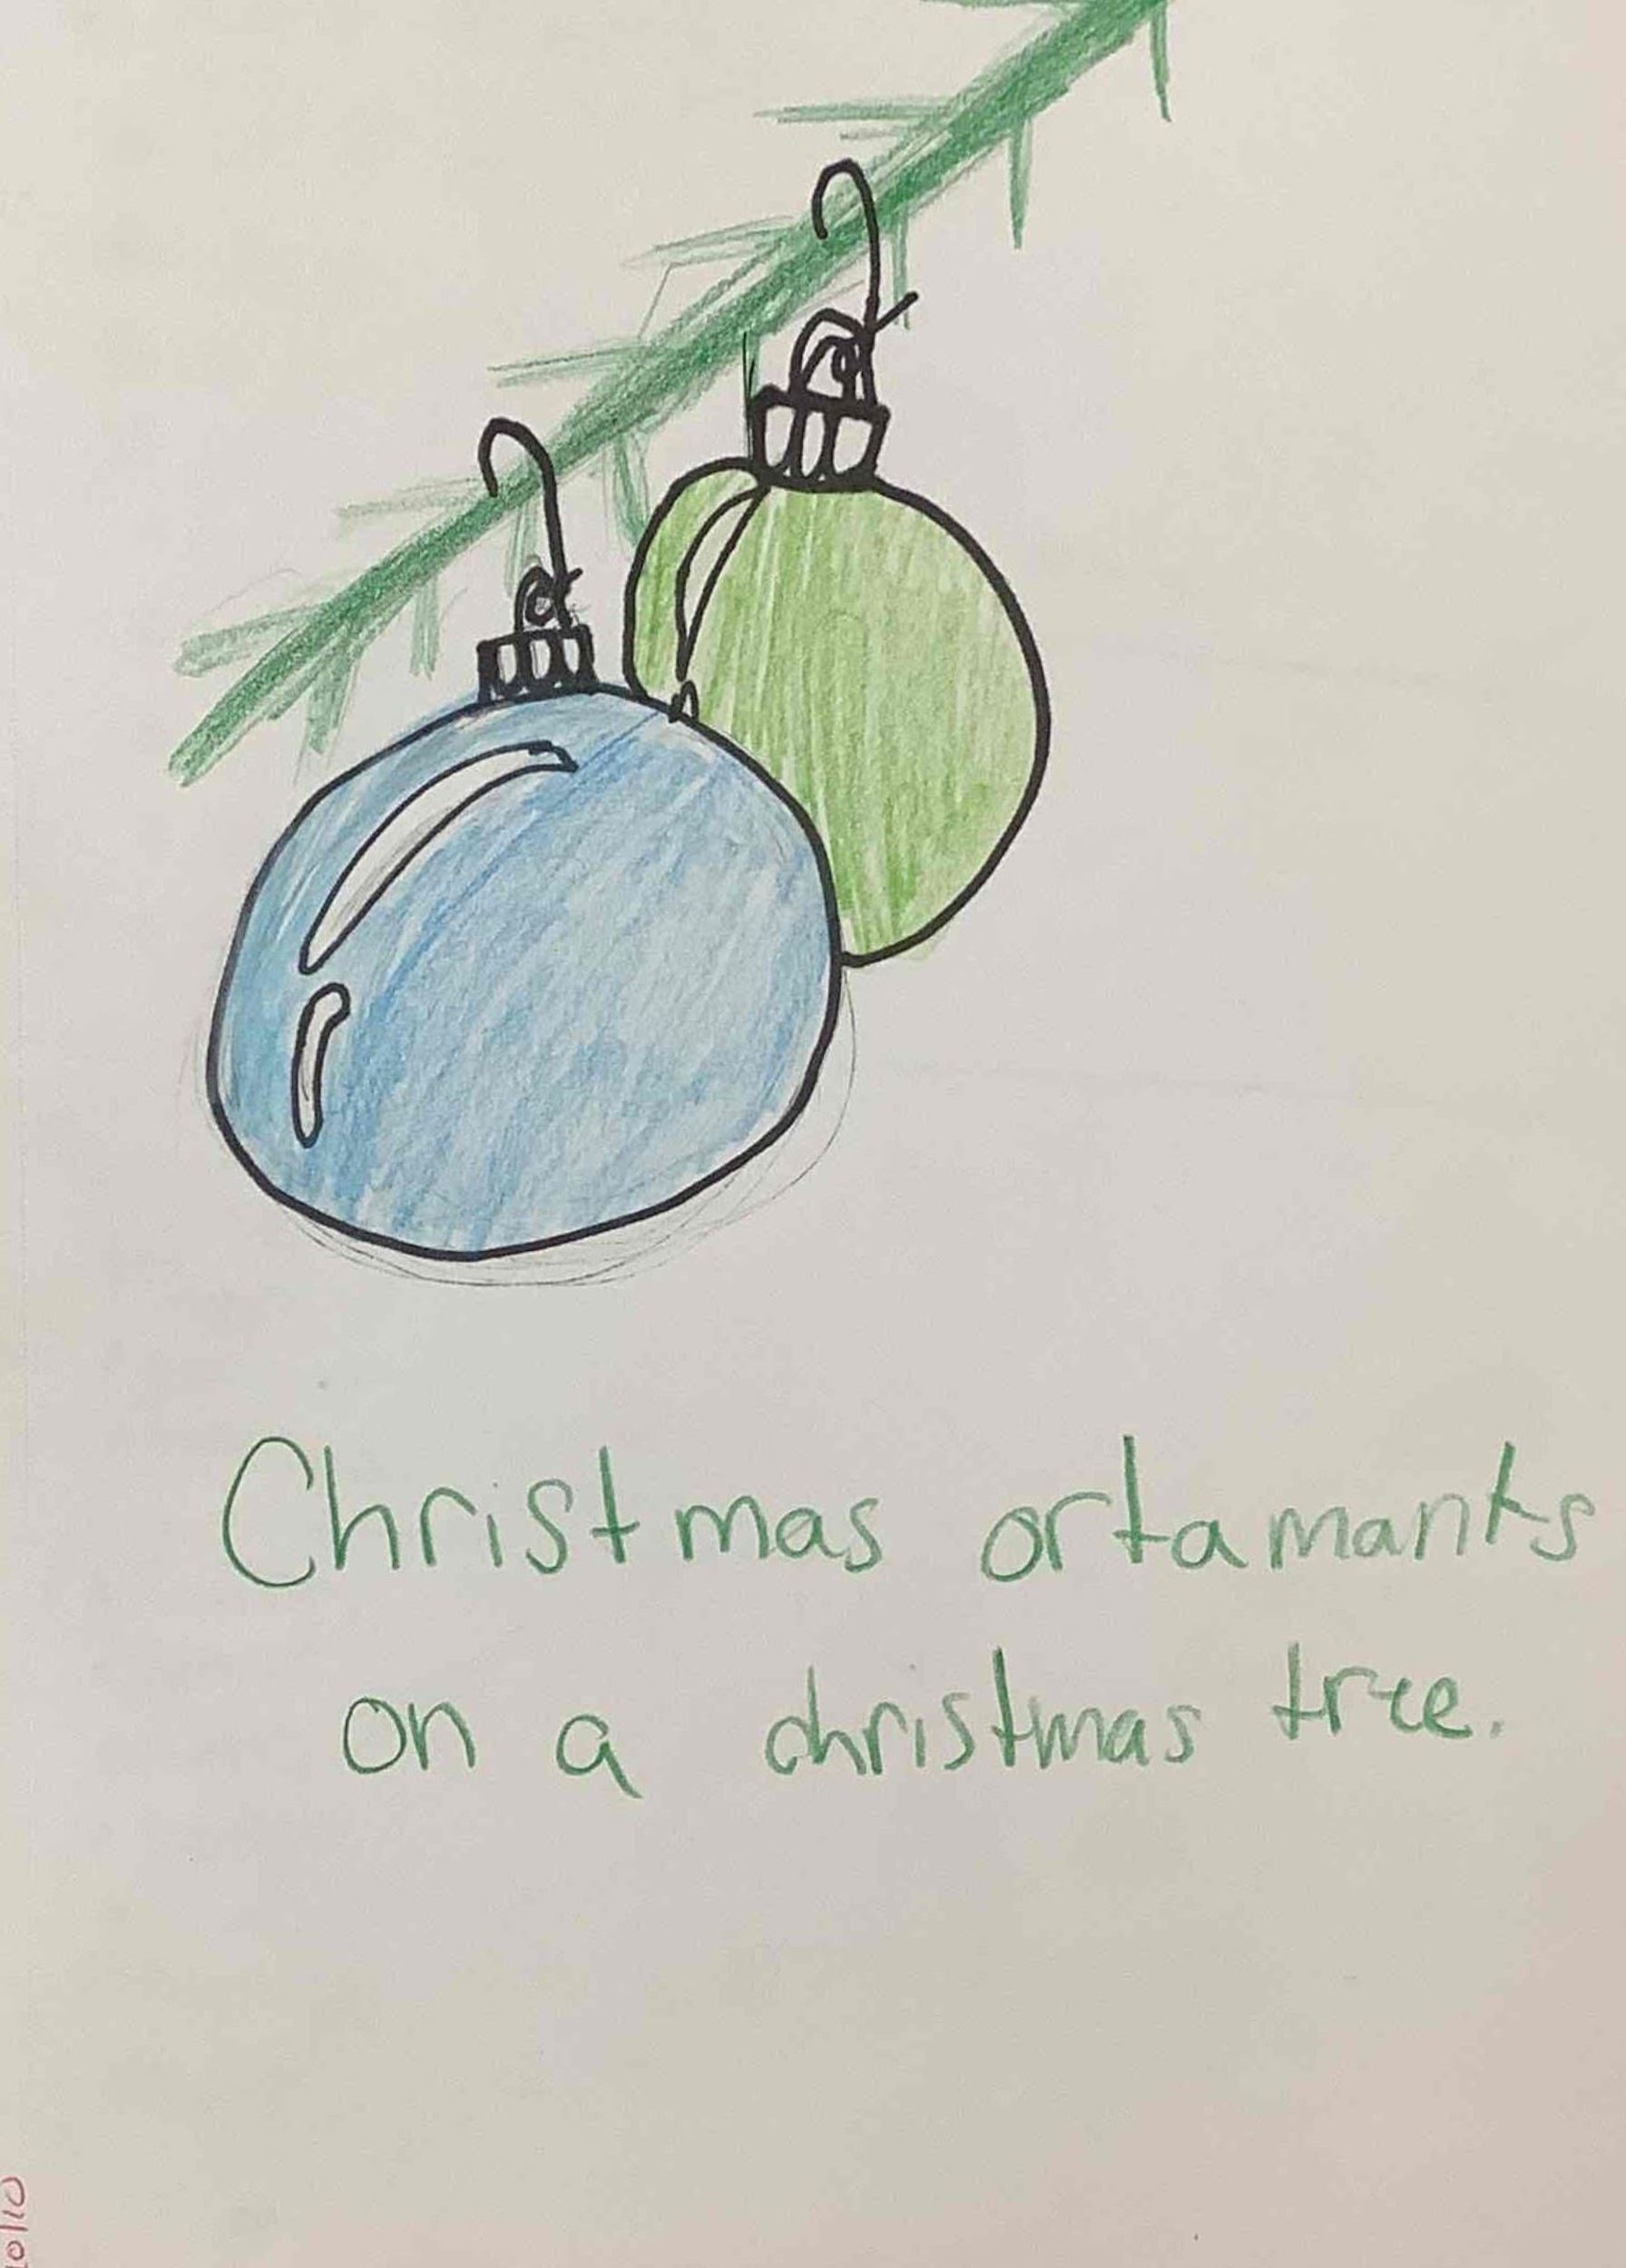 Christmas ortamants
on a christmas tree.
10/10